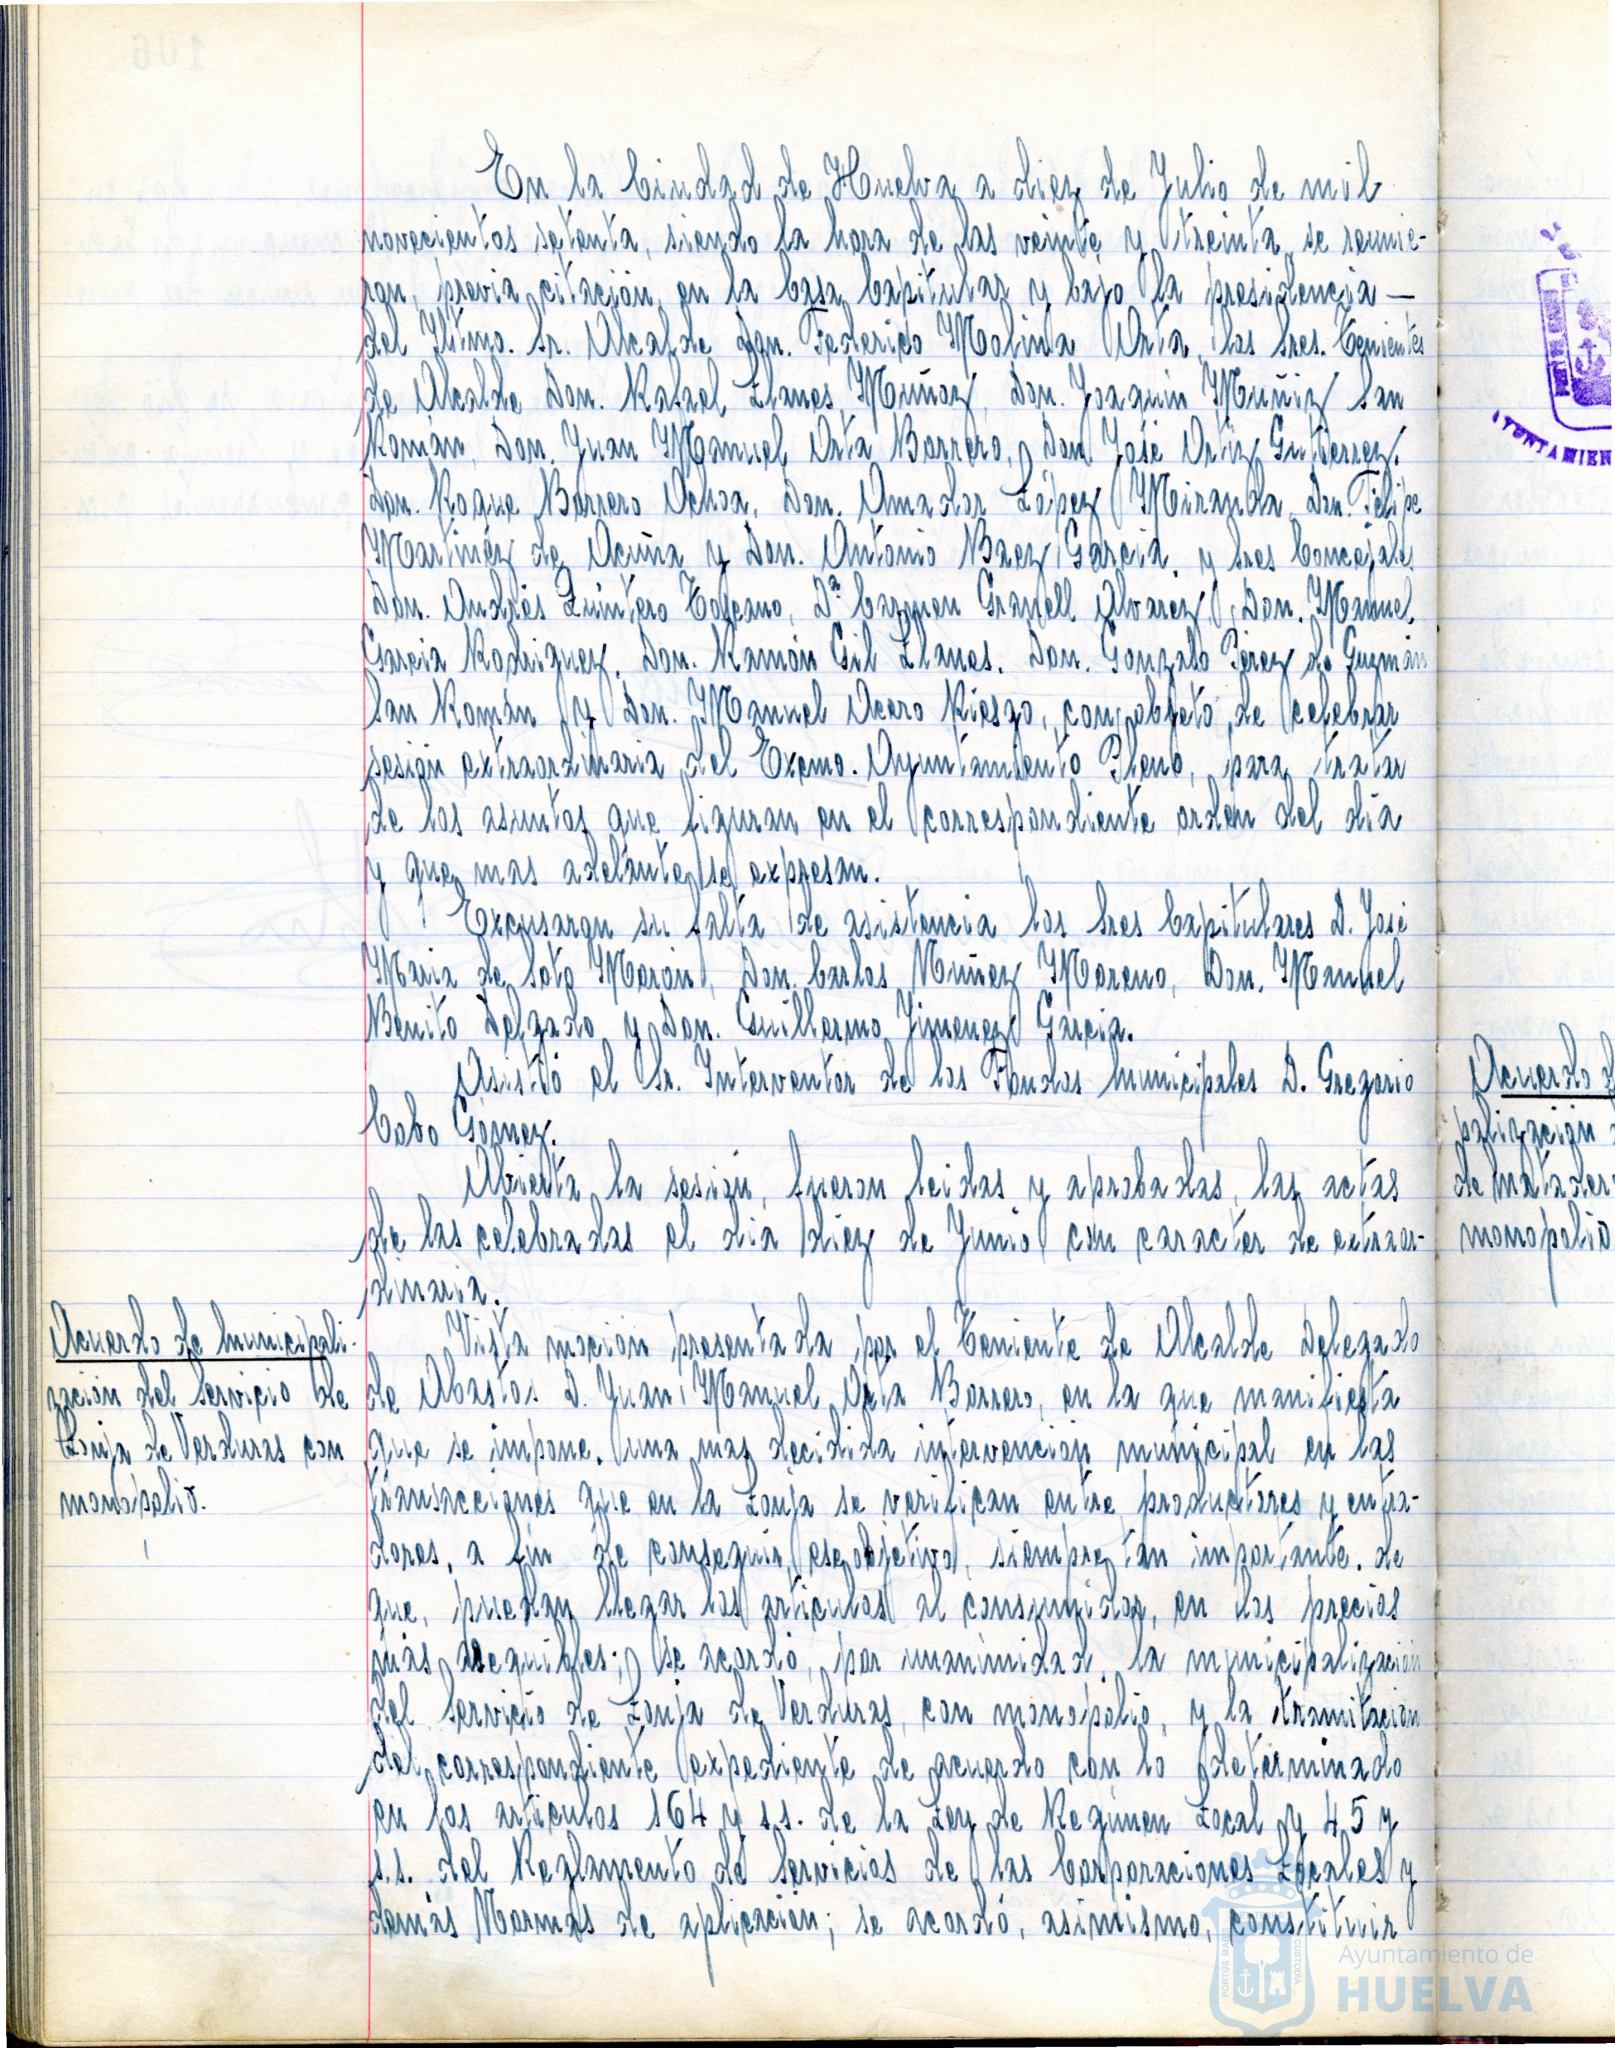 En la Ciudad de Huelva a diez de Julio de mil
novecientos setenta, siendo la hora de las veinte y treinta, se reunie-
ron, previa citación, en la Casa Capitular y bajo la presidencia —
del Iltmo. Sr. Alcalde Don. Federico Molina Orta, los Sres. Tenientes
de Alcalde Don. Rafael Llanes Muñoz, Don. Joaquin Muñiz San
Román, Don. Juan Manuel Orta Borrero, Don José Ortiz Gutierrez.
Don. Roque Barrero Ochoa, Don. Amador López Miranda, Don. Felipe
Martinéz de Acuña y Don. Antonio Baez Garcia, y Sres Concejales
Don. Andrés Quintero Toscano, Dª Carmen Granell Alvarez, Don. Manuel
Garcia Rodriguez, Don. Ramón Gil Llanes. Don. Gonzalo Pérez de Guzmán
San Román y Don. Manuel Acero Riesgo, con objeto de celebrar
sesión extraordinaria del Excmo. Ayuntamiento Pleno, para tratar
de los asuntos que figuran en el correspondiente orden del dia
y que mas adelante se expresan.
Excusaron su falta de asistencia los Sres Capitulares D. José
Maria de Soto Morón, Don. Carlos Nuñez Moreno, Don. Manuel
Benito Delgado y Don. Guillermo Jimenez Garcia.
Asistió el Sr. Interventor de los Fondos Municipales D. Gregorio
Cobo Gómez.
Abierta la sesión, fueron leidas y aprobadas, las actas
de las celebradas el dia diez de Junio con caracter de extraor-
dinaria.
Acuerdo de Municipali-
zación del Servicio de
Lonja de Verduras con
monopolio.
Vista moción presentada por el Teniente de Alcalde Delegado
de Abastos D. Juan Manuel Orta Borrero, en la que manifiesta
que se impone, una mas decidida intervención municipal en las
transacciones que en la Lonja se verifican entre productores y entra-
dores, a fin de conseguir, ese objetivo, siempre tan importante, de
que, puedan llegar los articulos al consumidor, en los precios
más asequibles; se acordó, por unanimidad, la municipalización
del Servicio de Lonja de Verduras, con monopolio, y la tramitación
del correspondiente expediente de acuerdo con lo determinado
en los articulos 164 y s.s. de la Ley de Regimen Local y 45 y
s.s. del Reglamento de Servicios de las Corporaciones Locales y
demás Normas de aplicación; se acordó, asimismo, constituir
Acuerdo d
palización
de matader
monopolio
AYUNTAMIEN
PORTUS MARIS
CUSTODIA
Ayuntamiento de
HUELVA
106